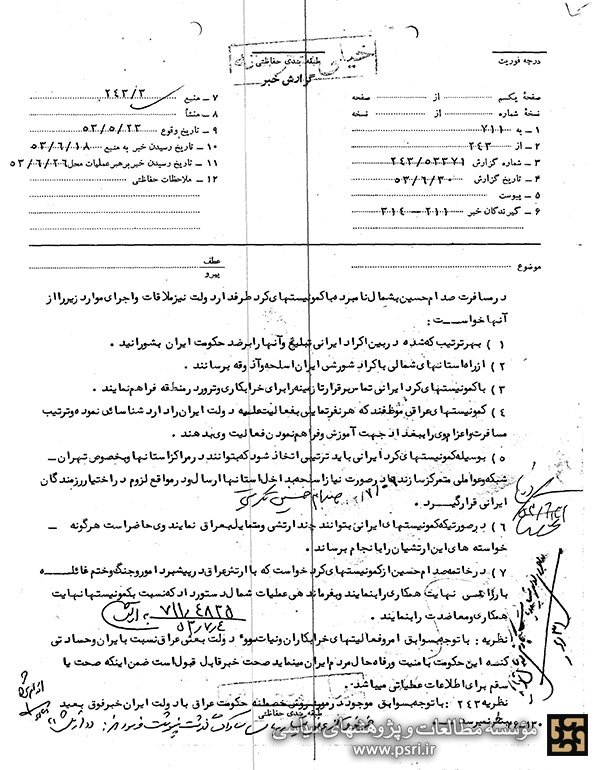 خیلی
طبقه بندی حفاظتی
گزارش خبر
درجه فوریت
صفحهٔ یکم از صفحه
نسخهٔ شماره از نسخه
۱ - به ۷۱۱
۲ - از ۲۴۳
۳ - شماره گزارش ۲۴۳/۵۳۳۷۱
۴ - تاریخ گزارش ۵۳/۶/۳۰
۵ - پیوست
۶ - گیرندگان خبر ۲۱۱ - ۳۱۴
۷ - منبع ۲۴۳/۳
۸ - منشأ
۹ - تاریخ وقوع ۵۳/۵/۲۳
۱۰ - تاریخ رسیدن خبر به منبع ۵۳/۶/۱۸
۱۱ - تاریخ رسیدن خبر برهبر عملیات محل ۵۳/۶/۲۶
۱۲ - ملاحظات حفاظتی
موضوع
عطف
پیرو
در مسافرت صدام حسین بشمال نامبرده با کمونیستهای کرد طرفدار دولت نیز ملاقات و اجرای موارد زیر را از
آنها خواست :
۱ ) بهر ترتیب که شده در بین اکراد ایرانی تبلیغ و آنها را بر ضد حکومت ایران بشورانید .
۲ ) از راه استانهای شمالی با کراد شورشی ایران اسلحه و آذوقه برسانند .
۳ ) با کمونیستهای کرد ایرانی تماس برقرار تا زمینه را برای خرابکاری و ترور در منطقه فراهم نمایند .
۴ ) کمونیستهای عراقی موظفند که هر نفر تمایلی بفعالیت علیه دولت ایران را دارد شناسائی نموده و ترتیب
مسافرت و اعزام وی را ببغداد جهت آموزش و فراهم نمودن فعالیت وی بدهند .
۵ ) بوسیله کمونیستهای کرد ایرانی باید ترتیبی اتخاذ شود که بتوانند در مراکز استانها و بخصوص تهران -
شبکه و عواملی متمرکز سازند و در صورت نیاز اسلحه بداخل استانها ارسال و در مواقع لزوم در اختیار رزمندگان
ایرانی قرار گیرد .
صدام حسین تکریتی
۶ ) در صورتیکه کمونیستهای ایرانی بتوانند چند ارتشی و متمایل بعراق نمایند وی حاضر است هرگونه -
خواسته های این ارتشیان را بانجام برساند .
۷ ) در خاتمه صدام حسین از کمونیستهای کرد خواست که با ارتش عراق در پیشبرد امور جنگ و ختم قائله
بارزانی نهایت همکاری را بنمایند و بفرماندهی عملیات شمال دستور داد که نسبت بکمونیستها نهایت
همکاری و معاضدت را بنمایند .
۷۱۱/۴۸۳۵
۵۳/۷/۴
نظریه : با توجه بسوابق امر و فعالیتهای خرابکاران و نیات سوء دولت بعثی عراق نسبت با یران و حسادتی
کننده این حکومت با منیت و رفاه حال مردم ایران مینماید صحت خبر قابل قبول است ضمن اینکه صحت یا
سقم برای اطلاعات عملیاتی میباشد .
نظریه ۲۴۳ : با توجه بسوابق موجود در مورد روش خصمانه حکومت عراق با دولت ایران خبر فوق بعید
طبقه بندی حفاظتی
موسسه مطالعات و پژوهشهای سیاسی
www.psri.ir